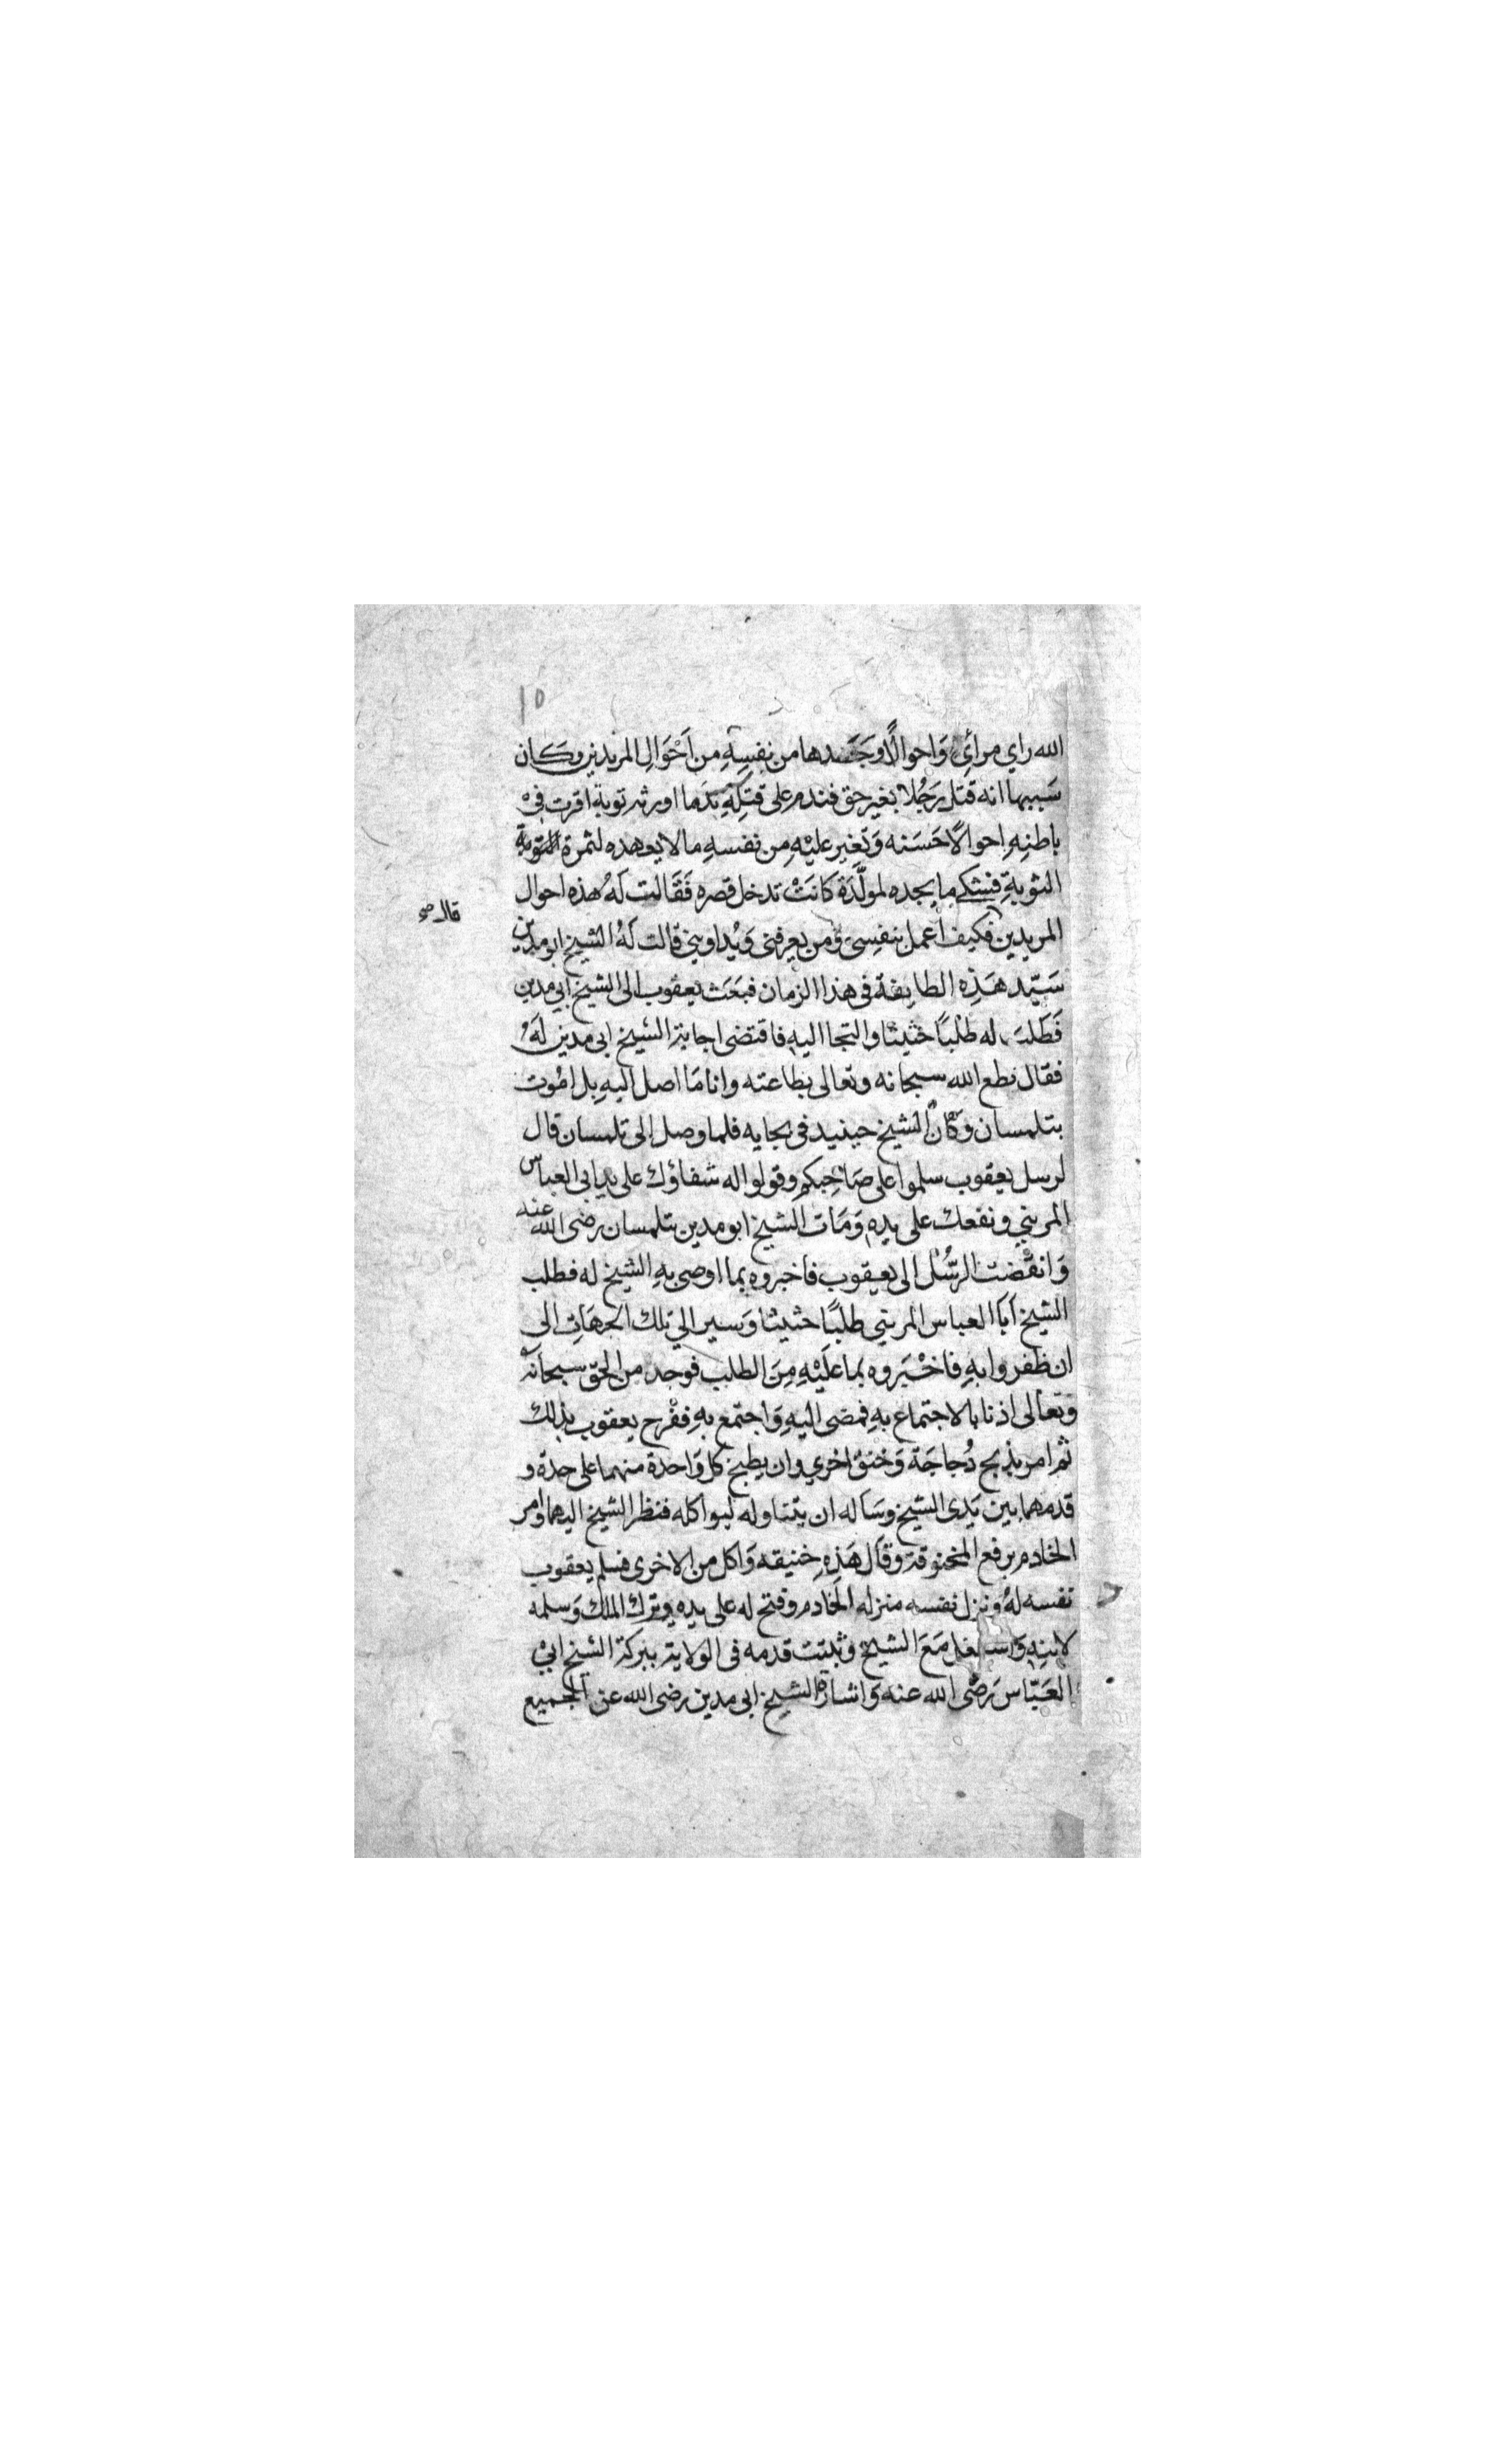 ١٥
الله راي مرأي وَاحوالًا وجَدها من نفسِهِ من اَحْوَالِ المريدين وكَان
سَببها انه قتل رَجُلا بغير حق فندم على قتلِهِ نَدَما اورثه توبة اقرت فِيْ
باطنِهِ احوالًا حَسَنه وَتغير عليْهِ من نفسهِ مالا يعهده لثمرة التوبة
التوبةِ فشكي ما يجده لمولَّدَة كانَتْ تدخل قصره فَقَالت لَهُ هذه احوال
قال صح
المريدين فكيف اَعمل بنفسِي وَمن يعرفنى وَيُداوينِي قالت لَهُ الشيخ ابو مدين
سَيّد هَذِه الطايفة فى هذا الزمان فبَعَث يعقوب الى الشيخ ابي مدين
فَطَلبَ له طلبًا حثيثا والتجا اليهِ فاقتضى اجابة الشيخ ابى مدين لَهُ
فقال نطع الله سبحانه وتعالى بطاعته وانا مَا اصل اليهِ بل اموت
بتلمسان وَكَان الشيخ حينيد فى بجايه فلما وصل الى تلمسان قال
لرسل يعقوب سلموا على صَاحِبكم وقولوا له شفاؤك على يد ابى العباس
المريني ونفعك على يدهِ وَمَات الشيخ ابو مدين بتلمسان رضى الله عنه
وَانقَضت الرُّسُل الى يعقوب فاخبروه بما اوصى بهِ الشيخ له فطلب
الشيخ اَبَا العباس المريني طلبًا حثيثا وَسير الي تلك الجهَاتِ الى
ان ظفروا بهِ فاخْبَروه بما علَيْهِ مِنَ الطلب فوجد من الحق سبحانه
وتعالى اذنا بالاجتماع بهِ فمضى اليهِ وَاجتمع بهِ ففرح يعقوب بذلك
ثم امر بذبح دُجاجَة وَخنق اخري وان يطبخ كل وَاحدة منهما على حدة و
قدمهما بين يَدى الشيخ وسَاله ان يتناوله ليواكله فنظر الشيخ اليهما وامر
الخادم برفع المخنوقة وقال هَذِهِ خنيقه وَاكل من الاخرى فسلم يعقوب
نفسه لهُ ونزل نفسه منزله الخادم وفتح له على يده وترك الملك وَسلمه
لابنِهِ وَاشتغل مَعَ الشيخ وثبتت قدمه فى الولاية ببركة الشيخ ابيْ
العَبّاس رَضى الله عنه وَاشارة الشيخ ابى مدين رضى الله عن الجميع